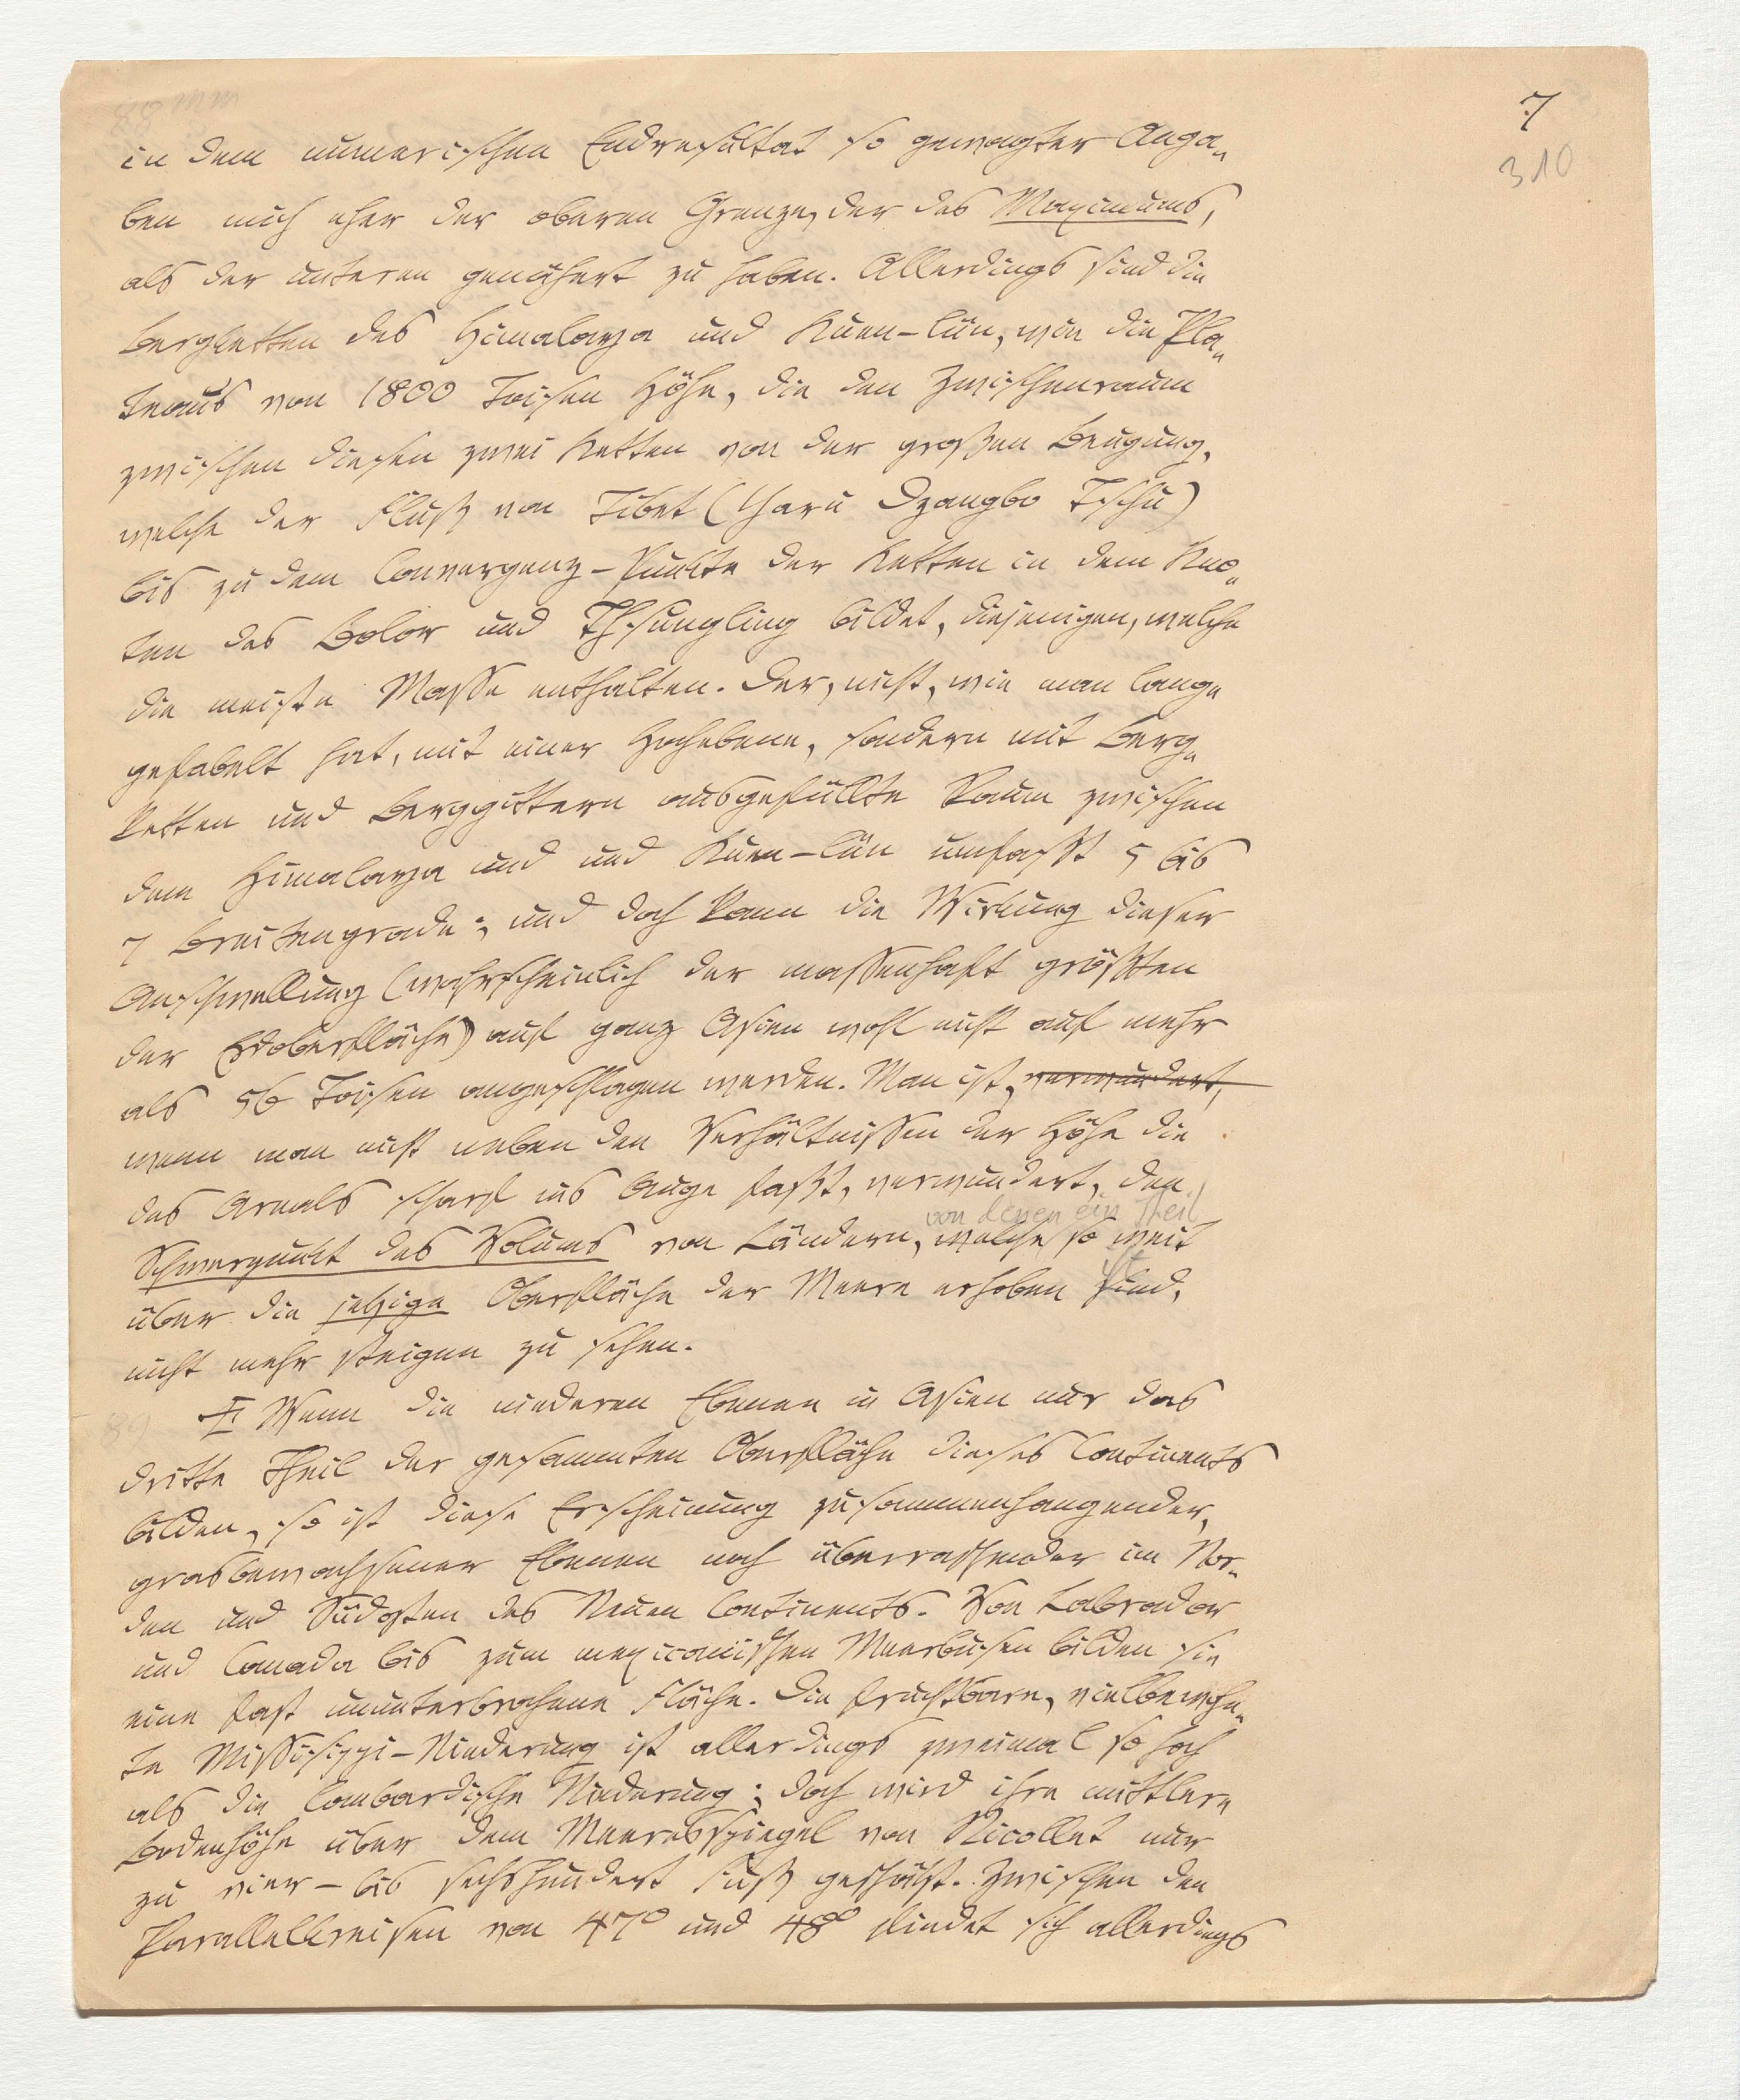 7
310
in dem numerischen Endresultat so gewagter Anga-
ben mich eher der oberen Grenze, der des Maximums,
als der unteren genähert zu haben. Allerdings sind die
Bergketten des Himalaya und Kuen-lün, wie die Pla-
teaus von 1800 Toisen Höhe, die den Zwischenraum
zwischen diesen zwei Ketten von der großen Beugung,
welche der Fluß von Tibet (Yaru Dzangbo Tschu)
bis zu dem Convergenz-Punkte der Ketten in dem Kno-
ten des Bolor und Thsungling bildet, diejenigen, welche
die meiste Masse enthalten. Der, nicht, wie man lange
gefabelt hat, mit einer Hochebene, sondern mit Berg-
ketten und Berggittern ausgefüllte Raum zwischen
dem Himalaya und und Kuen-lün umfaßt 5 bis
7 Breitengrade; und doch kann die Wirkung dieser
Anschwellung (wahrscheinlich der massenhaft größten
der Erdoberfläche) auf ganz Asien wohl nicht auf mehr
als 56 Toisen angeschlagen werden. Man ist, verwundert,
wenn man nicht neben den Verhältnissen der Höhe die
des Areals scharf ins Auge faßt, verwundert, den
von denen ein Theil
Schwerpunkt des Volums von Ländern, welche so weit
ist
über die jetzige Oberfläche der Meere erhoben sind,
nicht mehr steigen zu sehen.
II Wenn die niederen Ebenen in Asien nur das
dritte Theil der gesammten Oberfläche dieses Continents
bilden, so ist diese Erscheinung zusammenhangender,
grasbewachsener Ebenen noch überraschender im Nor-
den und Südosten des Neuen Continents. Von Labrador
und Canada bis zum mexicanischen Meerbusen bilden sie
eine fast ununterbrochene Fläche. Die fruchtbare, vielbewohn-
te Mississippi-Niederung ist allerdings zweimal so hoch
als die lombardische Niederung; doch wird ihre mittlere
Bodenhöhe über dem Meeresspiegel von Nicollet nur
zu vier- bis sechshundert Fuß geschätzt. Zwischen den
Parallelkreisen von 47° und 48° findet sich allerdings